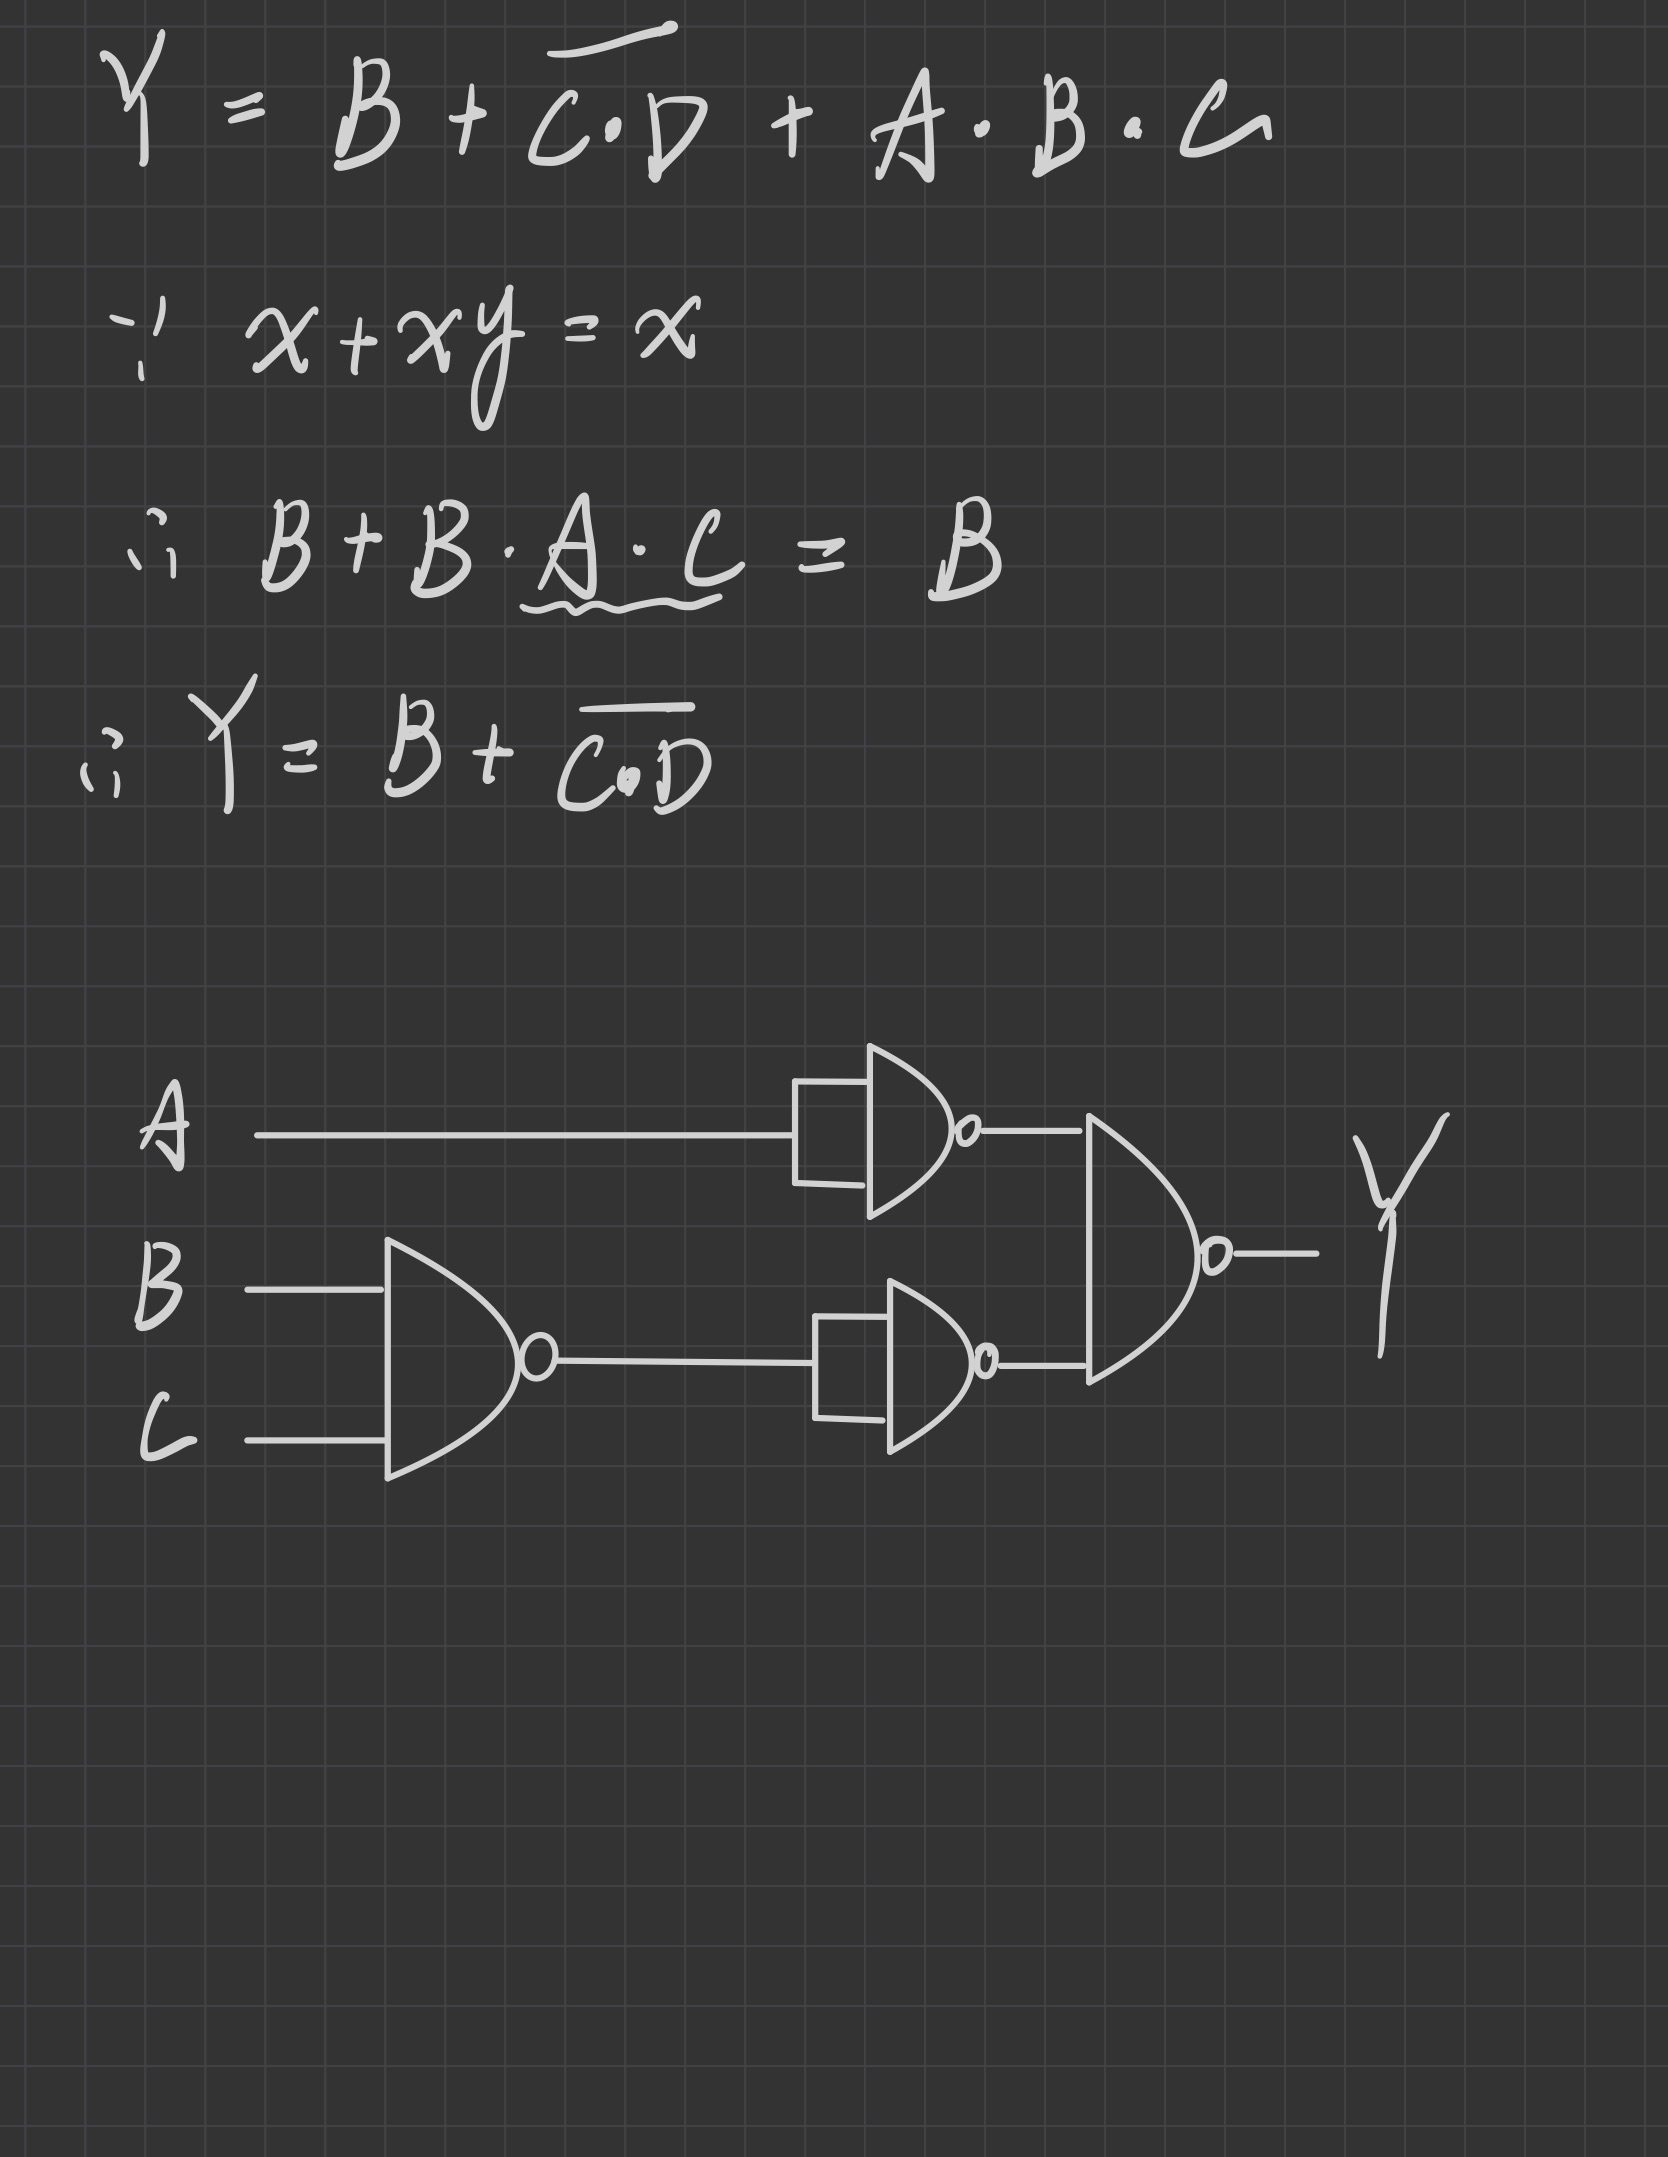 Y = B + \overline{C·D} + A·B·C
∵ x + xy = x
∴ B + B·A·C = B
∴ Y = B + \overline{C·D}
A
B
C
Y